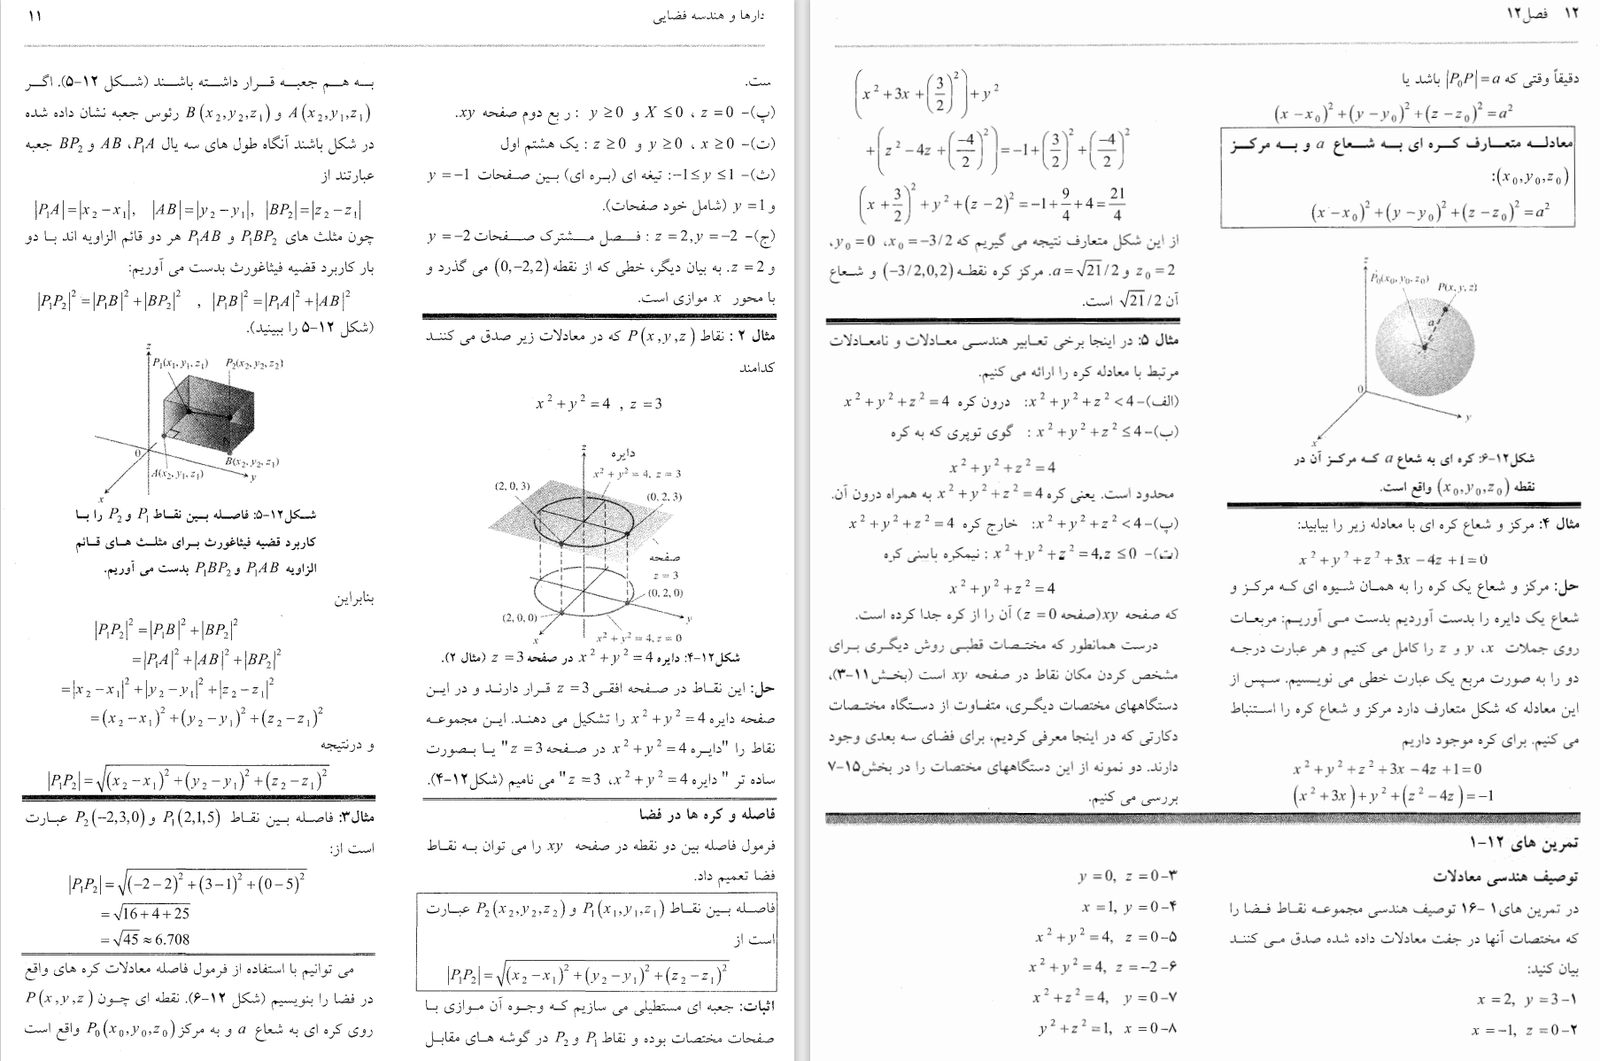 دارها و هندسه فضایی ۱۱
ست.
(پ)- z = 0 ، X ≤ 0 و y ≥ 0 : ربع دوم صفحه xy.
(ت)- x ≥ 0 ، y ≥ 0 و z ≥ 0 : یک هشتم اول
(ث)- −1 ≤ y ≤ 1: تیغه ای (بره ای) بین صفحات y = −1
و y = 1 (شامل خود صفحات).
(ج)- z = 2, y = −2 : فصل مشترک صفحات y = −2
و z = 2. به بیان دیگر، خطی که از نقطه (0,−2,2) می گذرد و
با محور x موازی است.
مثال ۲ : نقاط P(x,y,z) که در معادلات زیر صدق می کنند
کدامند
x² + y² = 4 , z = 3
z
دایره
x² + y² = 4, z = 3
(2, 0, 3)
(0, 2, 3)
صفحه
z = 3
(0, 2, 0)
(2, 0, 0)
y
x
x² + y² = 4, z = 0
شکل۱۲-۴: دایره x² + y² = 4 در صفحه z = 3 (مثال ۲).
حل: این نقاط در صفحه افقی z = 3 قرار دارند و در این
صفحه دایره x² + y² = 4 را تشکیل می دهند. این مجموعه
نقاط را "دایره x² + y² = 4 در صفحه z = 3" یا بصورت
ساده تر " دایره x² + y² = 4، z = 3" می نامیم (شکل۱۲-۴).
فاصله و کره ها در فضا
فرمول فاصله بین دو نقطه در صفحه xy را می توان به نقاط
فضا تعمیم داد.
فاصله بین نقاط P₁(x₁,y₁,z₁) و P₂(x₂,y₂,z₂) عبارت
است از
|P₁P₂| = √((x₂ − x₁)² + (y₂ − y₁)² + (z₂ − z₁)²)
اثبات: جعبه ای مستطیلی می سازیم که وجوه آن موازی با
صفحات مختصات بوده و نقاط P₁ و P₂ در گوشه های مقابل
به هم جعبه قرار داشته باشند (شکل ۱۲-۵). اگر
A(x₂,y₁,z₁) و B(x₂,y₂,z₁) رئوس جعبه نشان داده شده
در شکل باشند آنگاه طول های سه یال P₁A، AB و BP₂ جعبه
عبارتند از
|P₁A| = |x₂ − x₁|, |AB| = |y₂ − y₁|, |BP₂| = |z₂ − z₁|
چون مثلث های P₁BP₂ و P₁AB هر دو قائم الزاویه اند با دو
بار کاربرد قضیه فیثاغورث بدست می آوریم:
|P₁P₂|² = |P₁B|² + |BP₂|² , |P₁B|² = |P₁A|² + |AB|²
(شکل ۱۲-۵ را ببینید).
z
P₁(x₁, y₁, z₁)
P₂(x₂, y₂, z₂)
0
B(x₂, y₂, z₁)
A(x₂, y₁, z₁)
y
x
شکل۱۲-۵: فاصله بین نقاط P₁ و P₂ را با
کاربرد قضیه فیثاغورث برای مثلث های قائم
الزاویه P₁AB و P₁BP₂ بدست می آوریم.
بنابراین
|P₁P₂|² = |P₁B|² + |BP₂|²
= |P₁A|² + |AB|² + |BP₂|²
= |x₂ − x₁|² + |y₂ − y₁|² + |z₂ − z₁|²
= (x₂ − x₁)² + (y₂ − y₁)² + (z₂ − z₁)²
و درنتیجه
|P₁P₂| = √((x₂ − x₁)² + (y₂ − y₁)² + (z₂ − z₁)²)
مثال۳: فاصله بین نقاط P₁(2,1,5) و P₂(−2,3,0) عبارت
است از:
|P₁P₂| = √((−2 − 2)² + (3 − 1)² + (0 − 5)²)
= √(16 + 4 + 25)
= √45 ≈ 6.708
می توانیم با استفاده از فرمول فاصله معادلات کره های واقع
در فضا را بنویسیم (شکل ۱۲-۶). نقطه ای چون P(x,y,z)
روی کره ای به شعاع a و به مرکز P₀(x₀,y₀,z₀) واقع است
۱۲ فصل۱۲
دقیقاً وقتی که |P₀P| = a باشد یا
(x − x₀)² + (y − y₀)² + (z − z₀)² = a²
معادله متعارف کره ای به شعاع a و به مرکز
(x₀,y₀,z₀):
(x − x₀)² + (y − y₀)² + (z − z₀)² = a²
z
P₀(x₀, y₀, z₀)
P(x, y, z)
a
0
y
x
شکل۱۲-۶: کره ای به شعاع a که مرکز آن در
نقطه (x₀,y₀,z₀) واقع است.
مثال ۴: مرکز و شعاع کره ای با معادله زیر را بیابید:
x² + y² + z² + 3x − 4z + 1 = 0
حل: مرکز و شعاع یک کره را به همان شیوه ای که مرکز و
شعاع یک دایره را بدست آوردیم بدست می آوریم: مربعات
روی جملات x، y و z را کامل می کنیم و هر عبارت درجه
دو را به صورت مربع یک عبارت خطی می نویسیم. سپس از
این معادله که شکل متعارف دارد مرکز و شعاع کره را استنباط
می کنیم. برای کره موجود داریم
x² + y² + z² + 3x − 4z + 1 = 0
(x² + 3x) + y² + (z² − 4z) = −1
(x² + 3x + (3/2)²) + y²
+ (z² − 4z + (−4/2)²) = −1 + (3/2)² + (−4/2)²
(x + 3/2)² + y² + (z − 2)² = −1 + 9/4 + 4 = 21/4
از این شکل متعارف نتیجه می گیریم که x₀ = −3/2، y₀ = 0،
z₀ = 2 و a = √21/2. مرکز کره نقطه (−3/2,0,2) و شعاع
آن √21/2 است.
مثال ۵: در اینجا برخی تعابیر هندسی معادلات و نامعادلات
مرتبط با معادله کره را ارائه می کنیم.
(الف)- x² + y² + z² < 4: درون کره x² + y² + z² = 4
(ب)- x² + y² + z² ≤ 4 : گوی توپری که به کره
x² + y² + z² = 4
محدود است. یعنی کره x² + y² + z² = 4 به همراه درون آن.
(پ)- x² + y² + z² < 4: خارج کره x² + y² + z² = 4
(ت)- x² + y² + z² = 4, z ≤ 0 : نیمکره پایینی کره
x² + y² + z² = 4
که صفحه xy (صفحه z = 0) آن را از کره جدا کرده است.
درست همانطور که مختصات قطبی روش دیگری برای
مشخص کردن مکان نقاط در صفحه xy است (بخش۱۱-۳)،
دستگاههای مختصات دیگری، متفاوت از دستگاه مختصات
دکارتی که در اینجا معرفی کردیم، برای فضای سه بعدی وجود
دارند. دو نمونه از این دستگاههای مختصات را در بخش۱۵-۷
بررسی می کنیم.
تمرین های ۱۲-۱
توصیف هندسی معادلات
در تمرین های۱ -۱۶ توصیف هندسی مجموعه نقاط فضا را
که مختصات آنها در جفت معادلات داده شده صدق می کنند
بیان کنید:
۱- x = 2, y = 3
۲- x = −1, z = 0
۳- y = 0, z = 0
۴- x = 1, y = 0
۵- x² + y² = 4, z = 0
۶- x² + y² = 4, z = −2
۷- x² + z² = 4, y = 0
۸- y² + z² = 1, x = 0